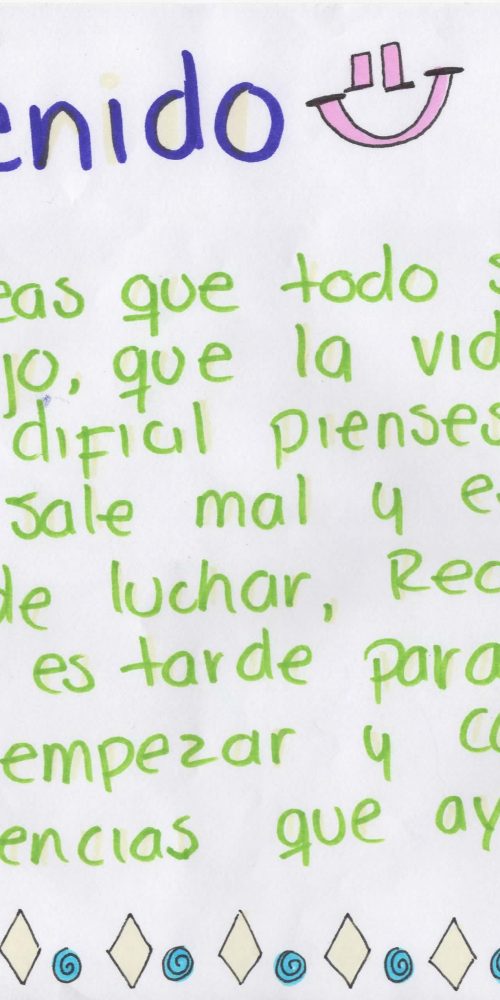 enido
eas que todo s
jo, que la vid
dificil pienses
sale mal y e
de luchar, Rec
es tarde para
empezar y co
encias que ay